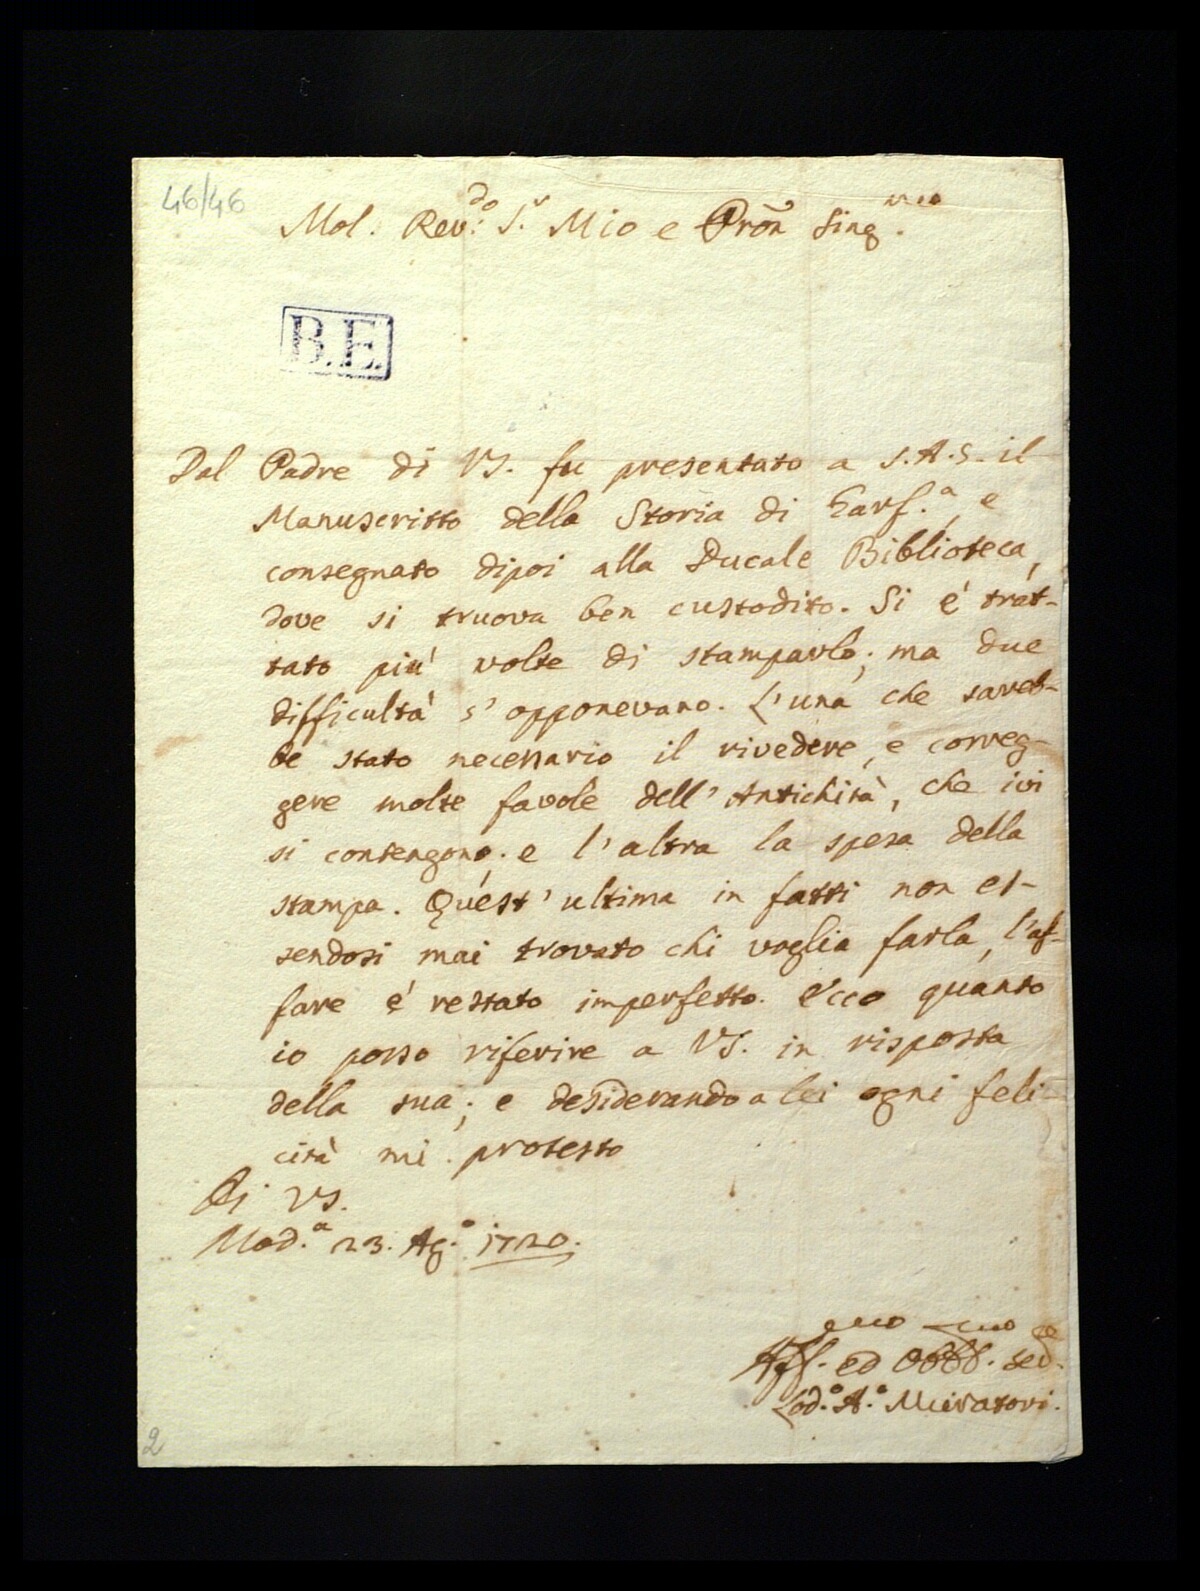 46/46
Mol. Rev.do S.r Mio e Pron Sing.mo
B.E.
Dal Padre di VS. fu presentato a S.A.S. il
Manuscritto della Storia di Garf.a, e
consegnato dipoi alla Ducale Biblioteca,
dove si truova ben custodito. Si é trat-
tato piú volte di stamparlo; ma due
difficultà s'opponevano. L'una che sareb-
be stato necessario il rivedere, e correg-
gere molte favole dell'Antichità, che ivi
si contengono; e l'altra la spesa della
stampa. Quest'ultima in fatti non es-
sendosi mai trovato chi voglia farla, l'af-
fare é restato imperfetto. Ecco quanto
io posso riferire a VS. in risposta
della sua; e desiderando a lei ogni feli-
cità mi protesto
Di VS.
Mod.a 23. Ag.o 1720.
Aff.mo ed Obbl.mo ser.e
Lod.o A.o Muratori.
2